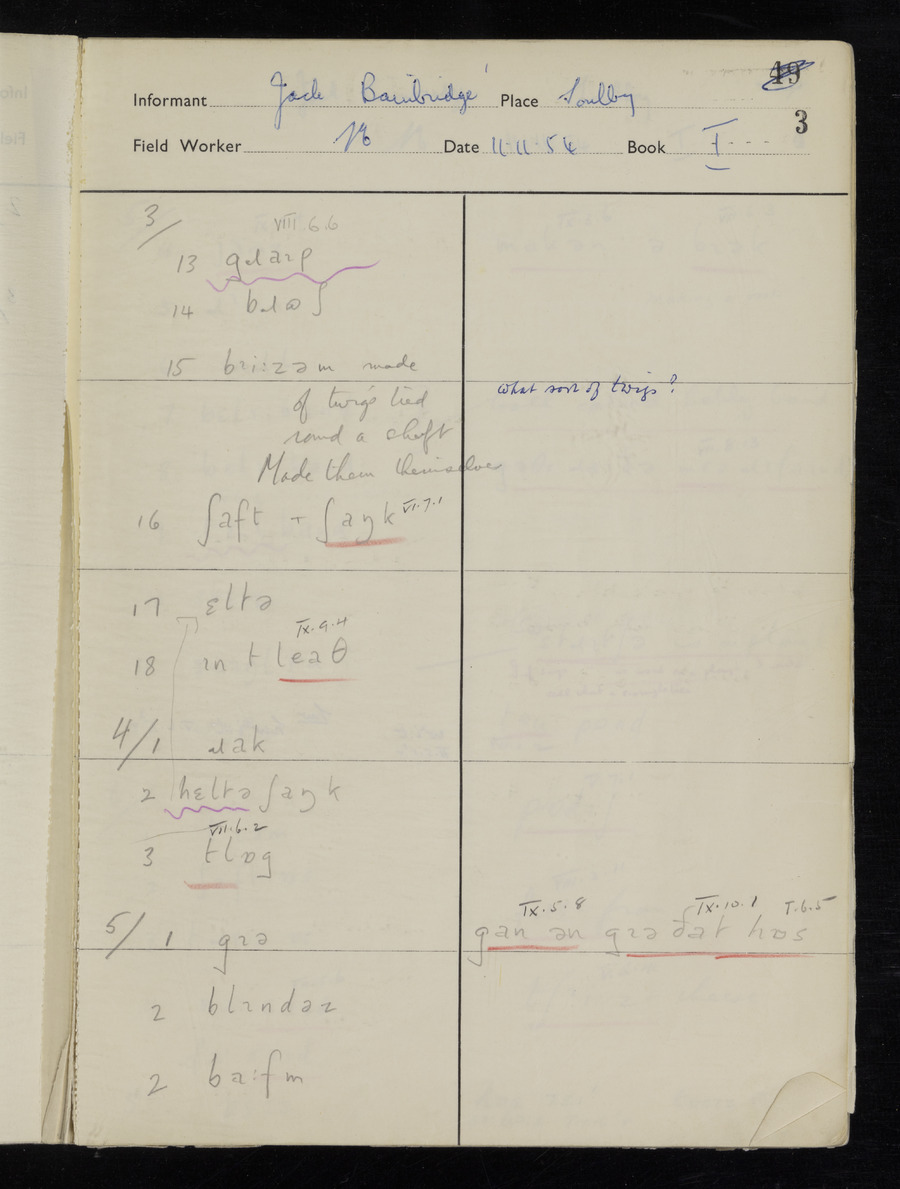 49
Informant Jack Bainbridge Place Soulby
3
Field Worker Date 11.11.54 Book I
3/ VIII.6.6
13 gɹaɪp
14
15 bɹi:zəm made
what sort of twigs?
of twigs tied
round a shaft
Made them themselves
16 ʃaft + ʃaŋk VI.7.1
17 ɛltə
IX.9.4
18 ɪn t leaθ
4/1
2 hɛltəʃaŋk
VII.6.2
3 tlɒg
IX.5.8 IX.10.1 I.6.5
5/ 1 gɪə gan ən gɪə ðat hɒs
2 blɪndəz
2 ba:fm